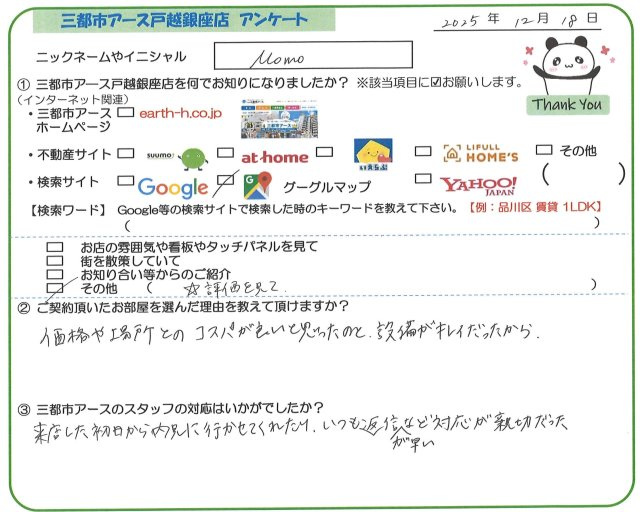 三都市アース戸越銀座店 アンケート
2025 年 12 月 18 日
ニックネームやイニシャル
Momo
① 三都市アース戸越銀座店を何でお知りになりましたか？ ※該当項目に☑お願いします。
（インターネット関連）
・三都市アース ホームページ
earth-h.co.jp
Thank You
・不動産サイト
suumo
at home
いえらぶ
LIFULL HOME'S
その他 ( )
・検索サイト
Google
グーグルマップ
YAHOO! JAPAN
【検索ワード】 Google等の検索サイトで検索した時のキーワードを教えて下さい。【例：品川区 賃貸 1LDK】
( )
お店の雰囲気や看板やタッチパネルを見て
街を散策していて
お知り合い等からのご紹介
その他 ( ☆評価を見て. )
② ご契約頂いたお部屋を選んだ理由を教えて頂けますか？
価格や場所とのコスパが良いと思ったのと、設備がキレイだったから.
③ 三都市アースのスタッフの対応はいかがでしたか？
来店した初日から内見に行かせてくれたり、いつも返信が早いなど対応が親切だった